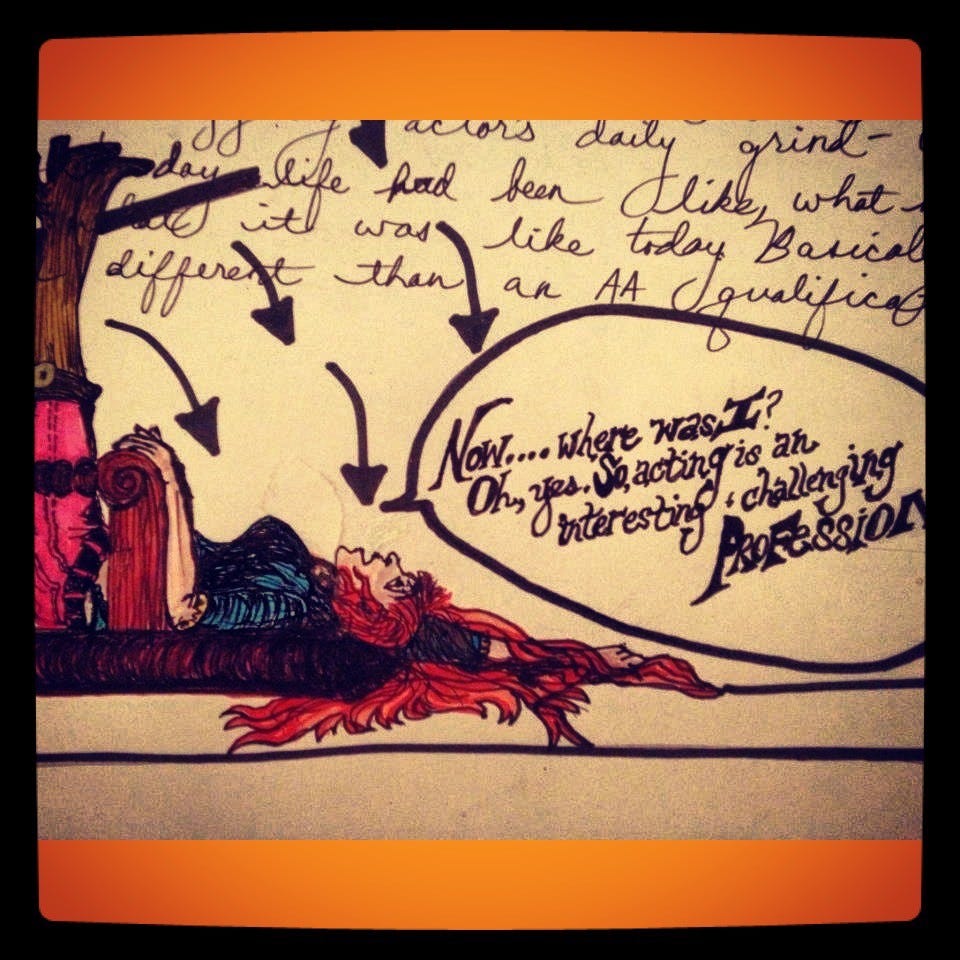 actors daily grind-
day life had been like, what
it was like today. Basical
different than an AA qualifica
Now.... where was I?
Oh, yes. So, acting is an
interesting & challenging
PROFESSION